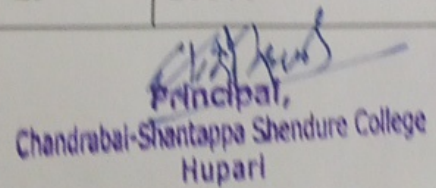 Principal,
Chandrabai-Shantappa Shendure College
Hupari